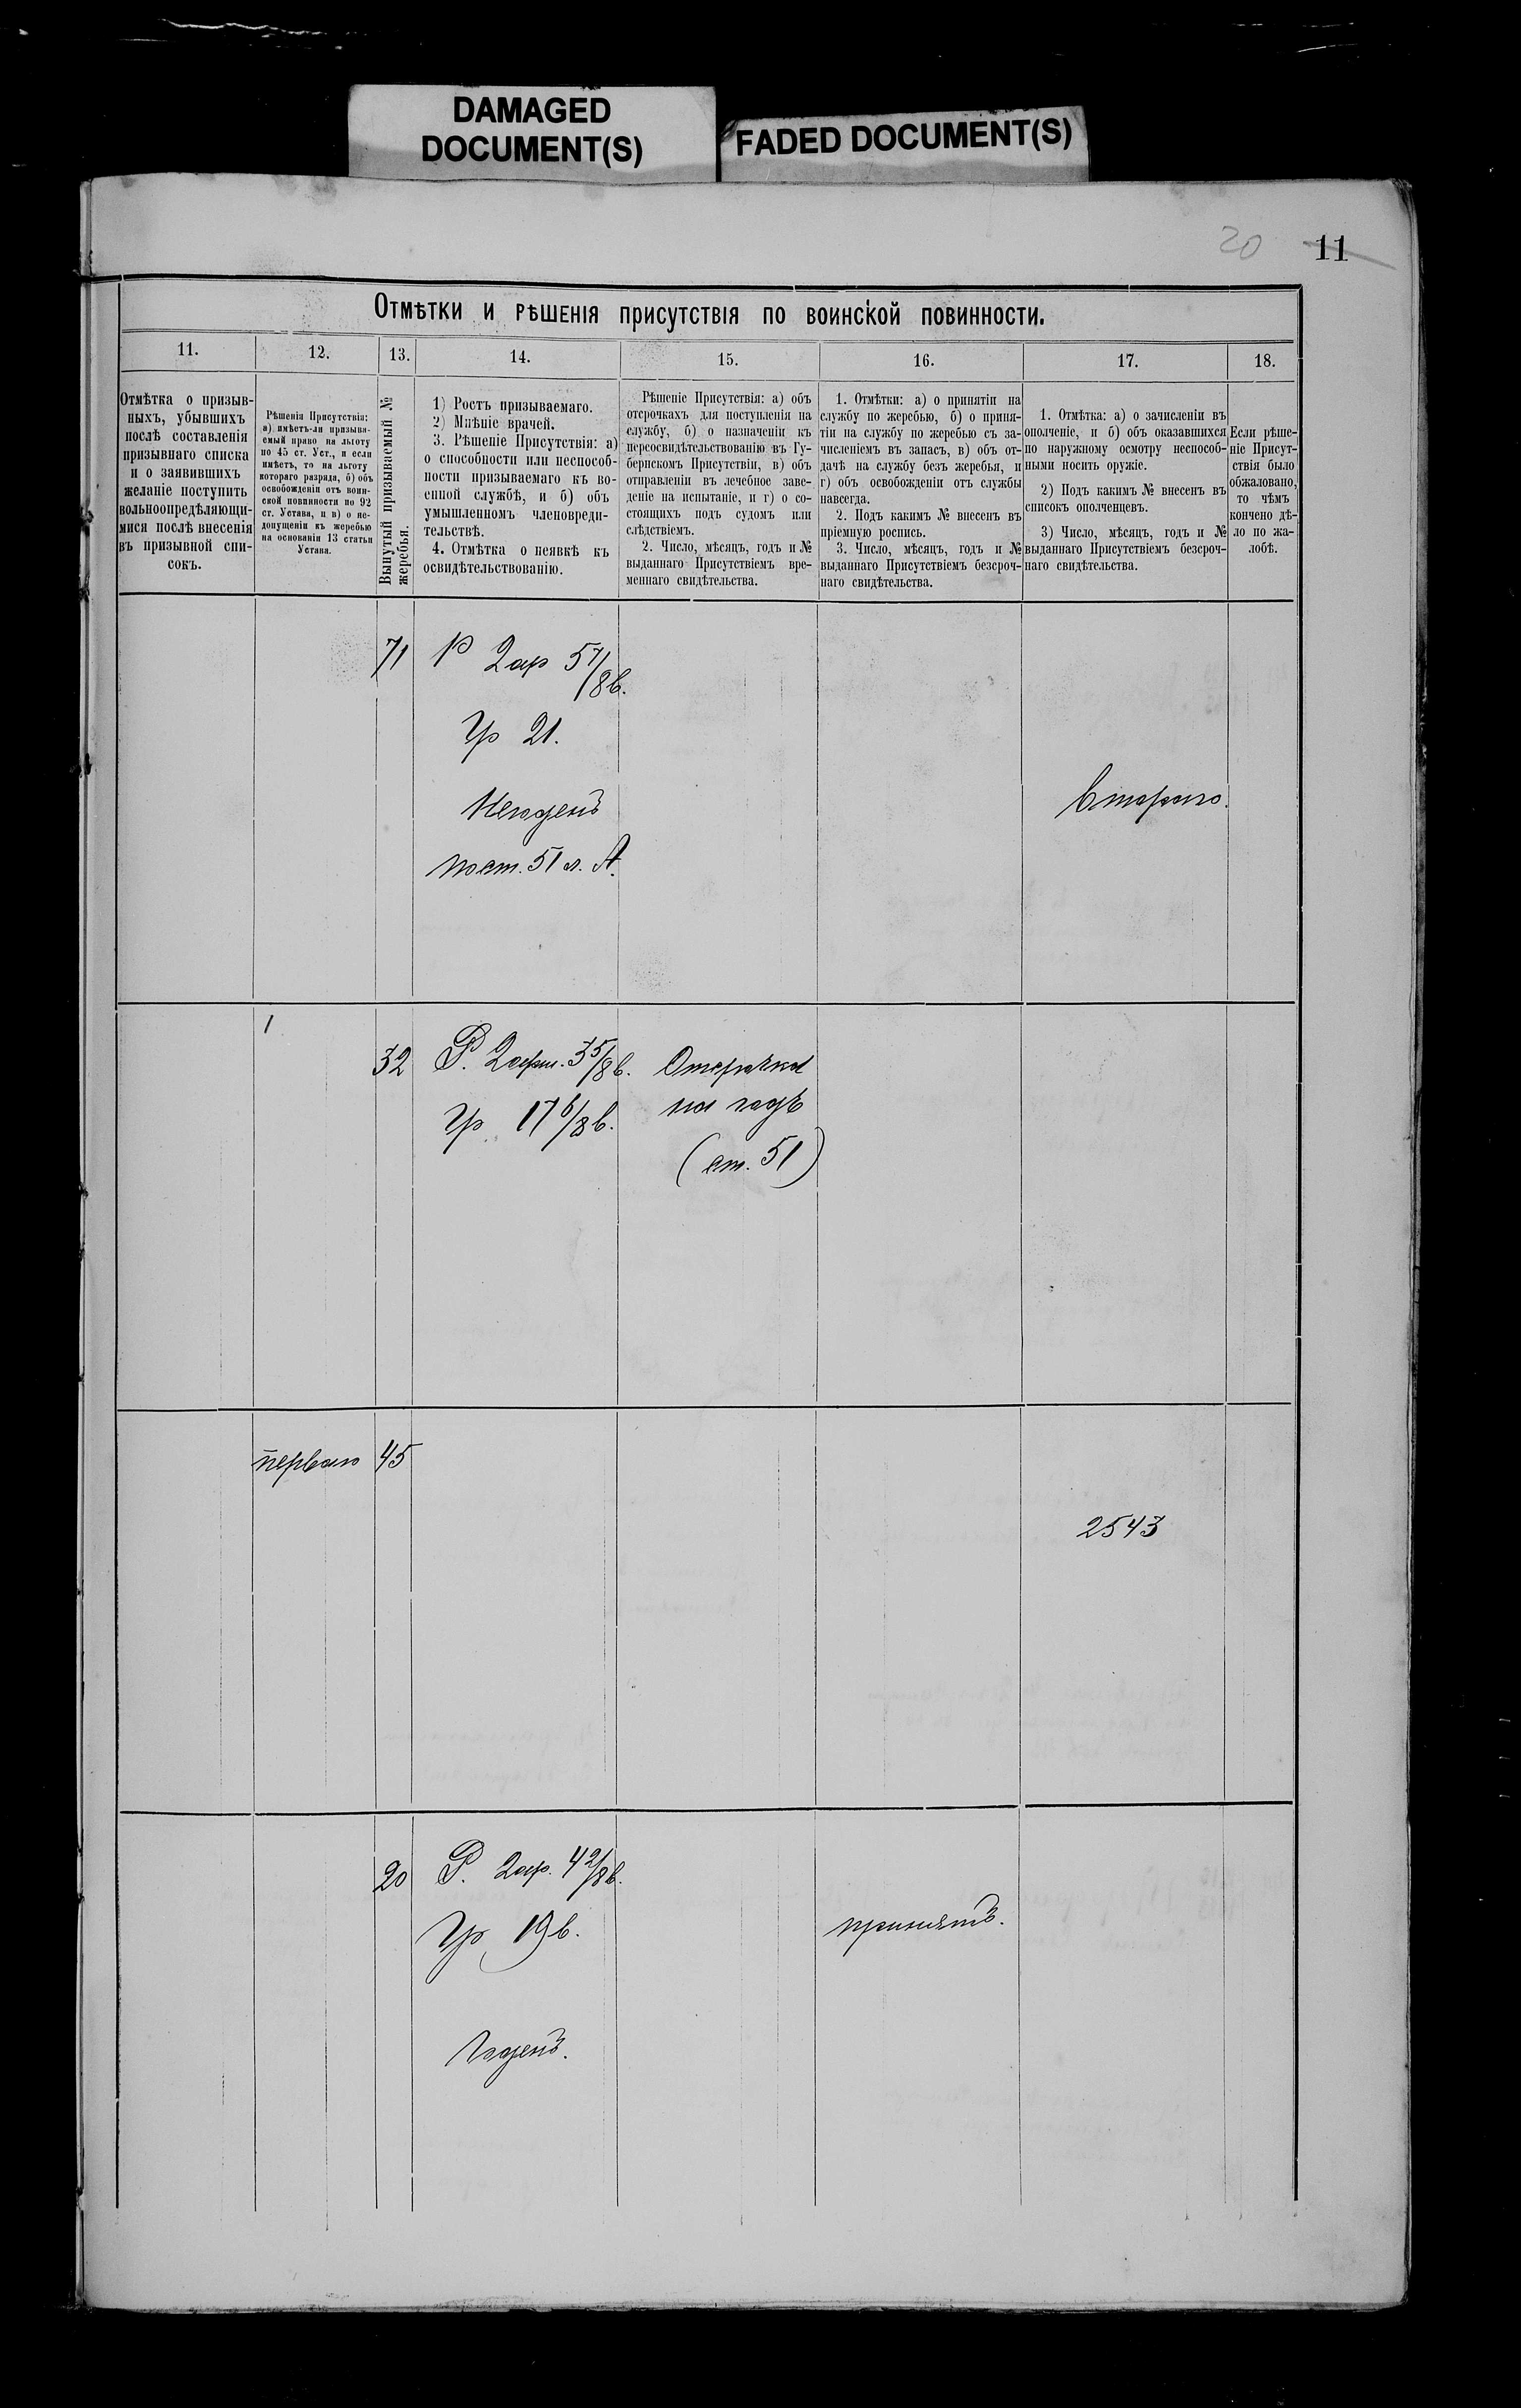 DAMAGED
DOCUMENT(S)
FADED DOCUMENT(S)
20 11
Отмѣтки и рѣшенія присутствія по воинской повинности.
11.
12.
13.
14.
15.
16.
17.
18.
Отмѣтка о призыв-
ныхъ, убывшихъ
послѣ составленія
призывнаго списка
и о заявившихъ
желаніе поступить
вольноопредѣляющи-
мися послѣ внесенія
въ призывной спи-
сокъ.
Рѣшенія Присутствія:
а) имѣетъ-ли призыва-
емый право на льготу
по 45 ст. Уст., и если
имѣетъ, то на льготу
котораго разряда, б) объ
освобожденіи отъ воин-
ской повинности по 92
ст. Устава, и в) о не-
допущеніи къ жеребью
на основаніи 13 статьи
Устава.
Вынутый призываемый №
жеребья.
1) Ростъ призываемаго.
2) Мнѣніе врачей.
3. Рѣшеніе Присутствія: а)
о способности или неспособ-
ности призываемаго къ во-
енной службѣ, и б) объ
умышленномъ членовреди-
тельствѣ.
4. Отмѣтка о неявкѣ къ
освидѣтельствованію.
Рѣшеніе Присутствія: а) объ
отсрочкахъ для поступленія на
службу, б) о назначеніи къ
переосвидѣтельствованію въ Гу-
бернскомъ Присутствіи, в) объ
отправленіи въ лечебное заве-
деніе на испытаніе, и г) о со-
стоящихъ подъ судомъ или
слѣдствіемъ.
2. Число, мѣсяцъ, годъ и №
выданнаго Присутствіемъ вре-
меннаго свидѣтельства.
1. Отмѣтки: а) о принятіи на
службу по жеребью, б) о приня-
тіи на службу по жеребью съ за-
численіемъ въ запасъ, в) объ от-
дачѣ на службу безъ жеребья, и
г) объ освобожденіи отъ службы
навсегда.
2. Подъ какимъ № внесенъ въ
пріемную роспись.
3. Число, мѣсяцъ, годъ и №
выданнаго Присутствіемъ безсроч-
наго свидѣтельства.
1. Отмѣтка: а) о зачисленіи въ
ополченіе, и б) объ оказавшихся
по наружному осмотру неспособ-
ными носить оружіе.
2) Подъ какимъ № внесенъ въ
списокъ ополченцевъ.
3) Число, мѣсяцъ, годъ и №
выданнаго Присутствіемъ безсроч-
наго свидѣтельства.
Если рѣше-
ніе Присут-
ствія было
обжаловано,
то чѣмъ
кончено дѣ-
ло по жа-
лобѣ.
71 Р 2 ар 5 7/8 в.
Гр 21.
Негоденъ
по ст. 51 л. А.
Второго.
1
32 Р. 2 арш. 3 5/8 в.
Гр 17 6/8 в.
Отсрочка
на годъ
(ст. 51)
перваго 45
2543
20 Р. 2 ар. 4 2/8 в.
Гр 19 в.
Годенъ.
принятъ.